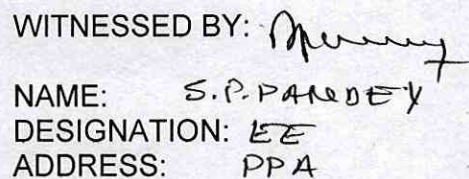 WITNESSED BY:
NAME: S.P. PANDEY
DESIGNATION: EE
ADDRESS: PPA